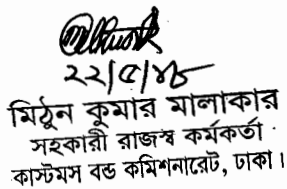 ২২/৫/২৮
মিঠুন কুমার মালাকার
সহকারী রাজস্ব কর্মকর্তা
কাস্টমস বন্ড কমিশনারেট, ঢাকা।